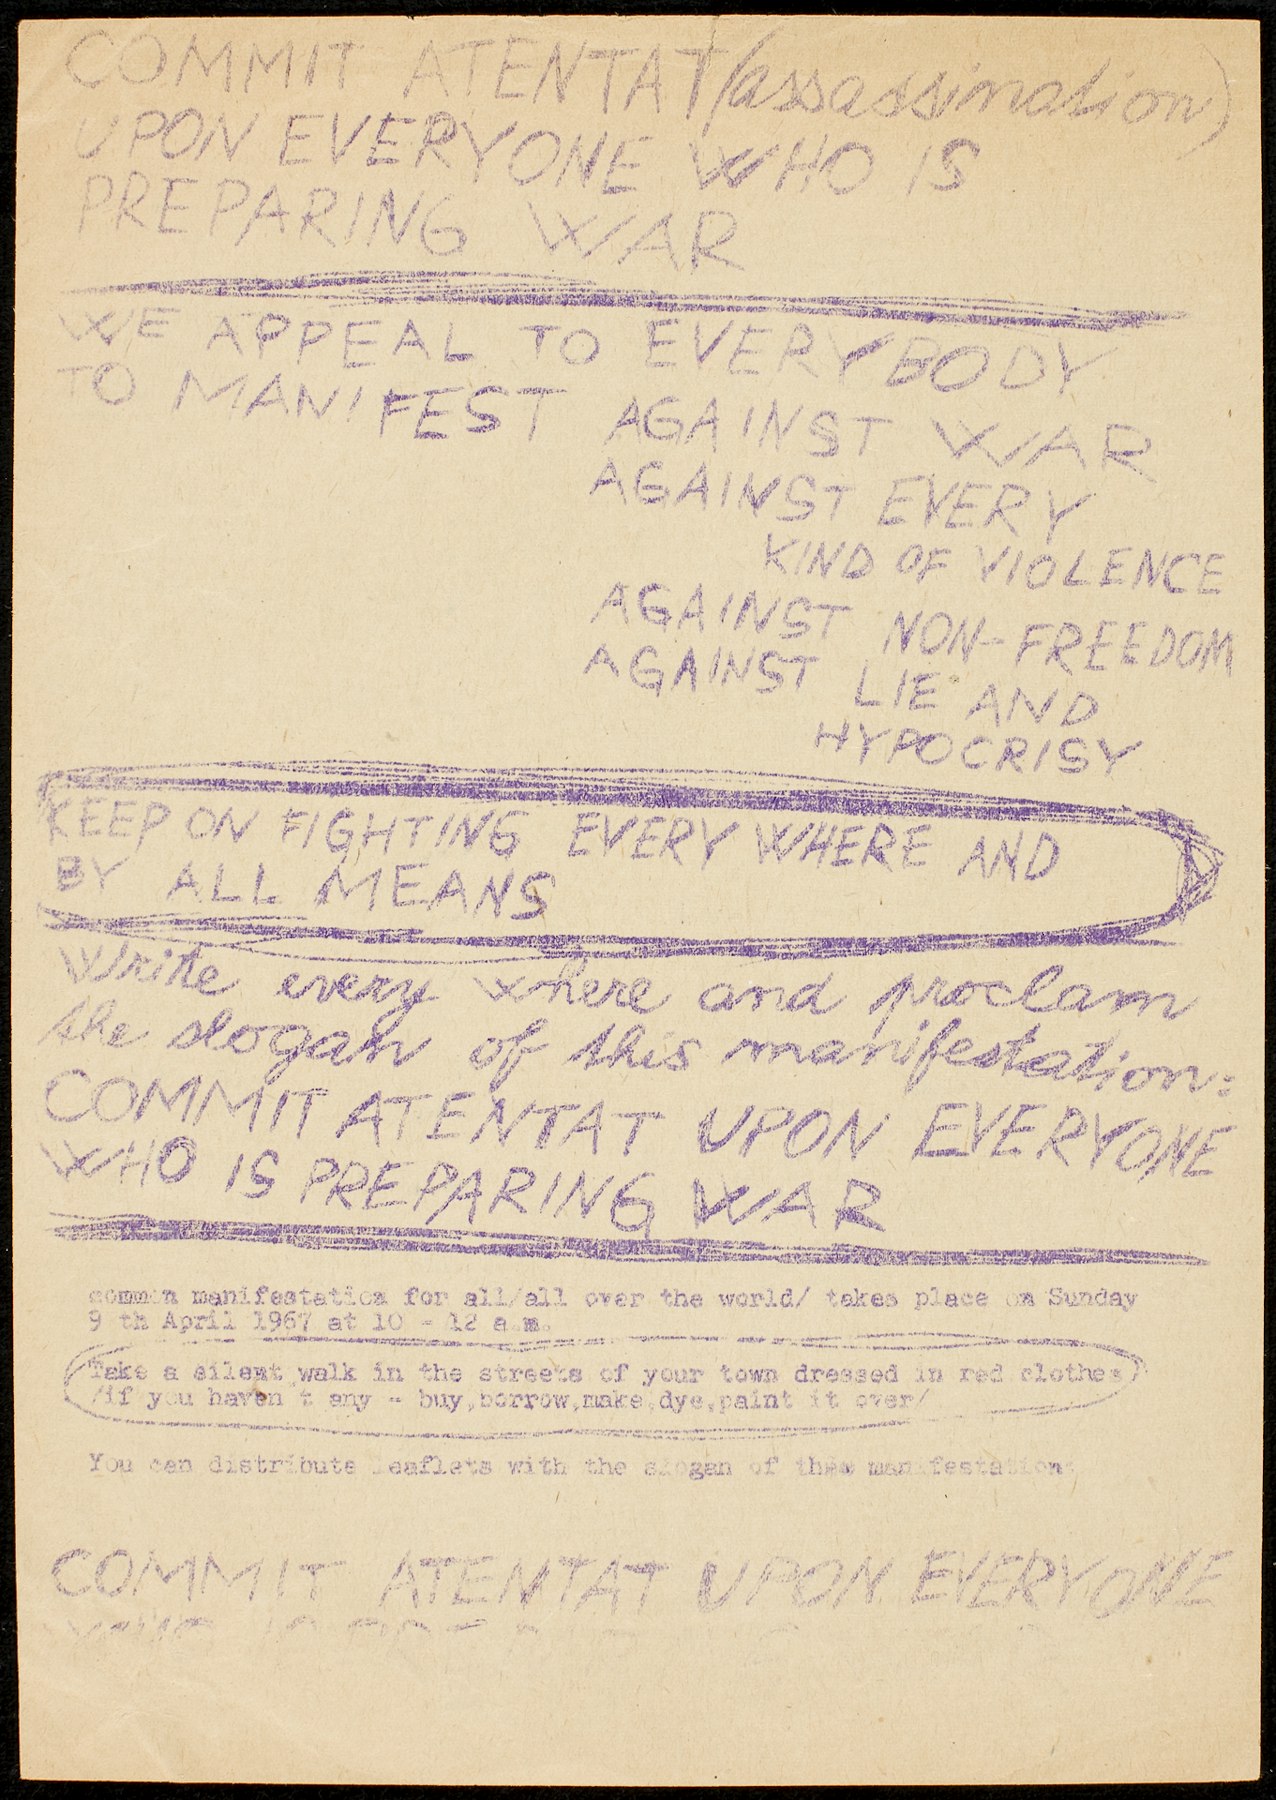 COMMIT ATENTAT (assassination)
UPON EVERYONE WHO IS
PREPARING WAR
WE APPEAL TO EVERYBODY
TO MANIFEST AGAINST WAR
AGAINST EVERY
KIND OF VIOLENCE
AGAINST NON-FREEDOM
AGAINST LIE AND
HYPOCRISY
KEEP ON FIGHTING EVERY WHERE AND
BY ALL MEANS
Write every where and proclam
the slogan of this manifestation:
COMMIT ATENTAT UPON EVERYONE
WHO IS PREPARING WAR
common manifestation for all/all over the world/ takes place on Sunday
9 th April 1967 at 10 - 12 a.m.
Take a silent walk in the streets of your town dressed in red clothes
/if you haven't any - buy,borrow,make,dye,paint it over/
You can distribute leaflets with the slogan of this manifestation:
COMMIT ATENTAT UPON EVERYONE